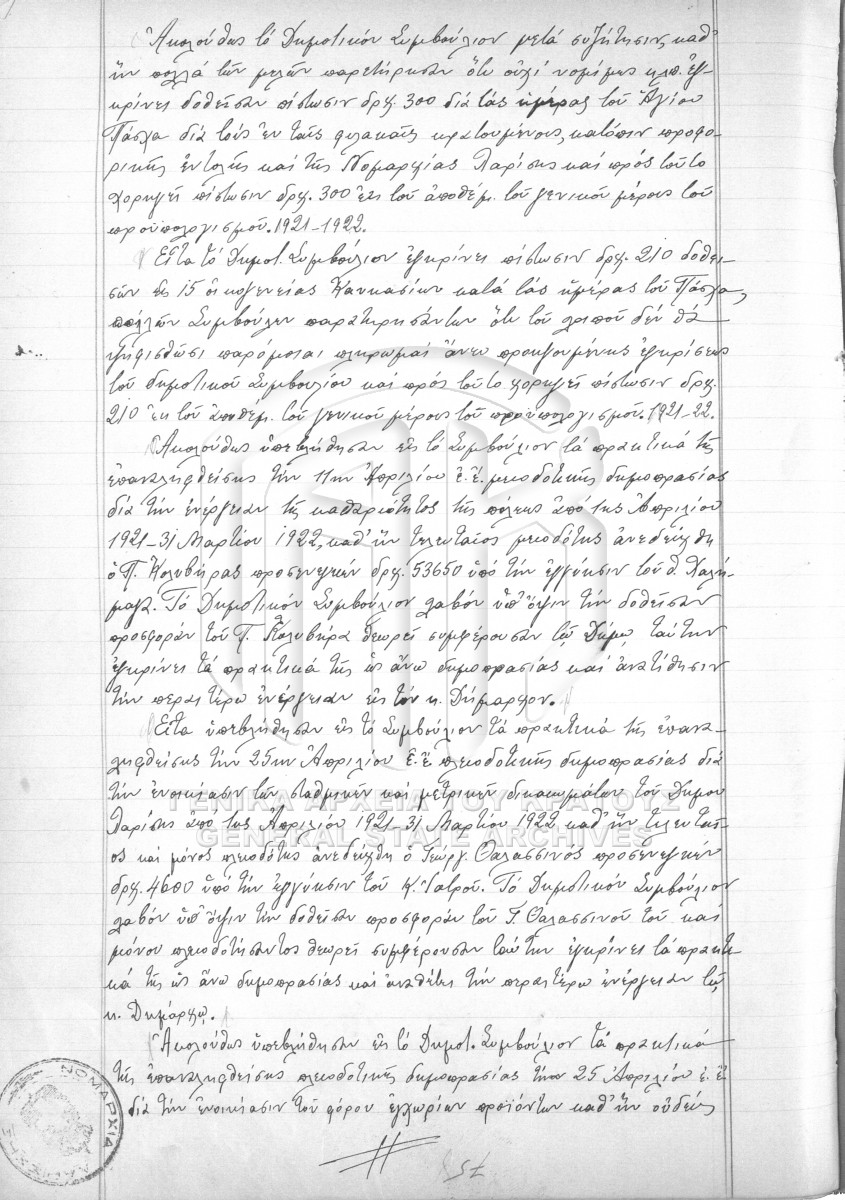 Ἀκολούθως τό Δημοτικόν Συμβούλιον μετά συζήτησιν, καθ'
ἥν πολλά τῶν μελῶν παρετήρησαν ὅτι οὐχί νομίμως κλπ. ἐγ-
κρίνει δοθεῖσαν πίστωσιν δρχ. 300 διά τάς ἡμέρας τοῦ Ἁγίου
Πάσχα διά τούς ἐν ταῖς φυλακαῖς κρατουμένους, κατόπιν προφο-
ρικῆς ἐντολῆς καί τῆς Νομαρχίας Λαρίσης καί πρός τοῦτο
χορηγεῖ πίστωσιν δρχ. 300 ἐκ τοῦ ἀποθεμ. τοῦ γενικοῦ μέρους τοῦ
προϋπολογισμοῦ. 1921-1922.
Εἶτα τό Δημοτ. Συμβούλιον ἐγκρίνει πίστωσιν δρχ. 210 δοθει-
σῶν εἰς 15 οἰκογενείας Καυκασίων κατά τάς ἡμέρας τοῦ Πάσχα,
πολλῶν Συμβούλων παρατηρησάντων ὅτι τοῦ λοιποῦ δέν θά
ψηφισθῶσι παρόμοιαι πληρωμαί ἄνευ προηγουμένης ἐγκρίσεως
τοῦ δημοτικοῦ Συμβουλίου καί πρός τοῦτο χορηγεῖ πίστωσιν δρχ.
210 ἐκ τοῦ ἀποθεμ. τοῦ γενικοῦ μέρους τοῦ προϋπολογισμοῦ. 1921-22.
Ἀκολούθως ὑπεβλήθησαν εἰς τό Συμβούλιον τά πρακτικά τῆς
ἐπαναληφθείσης τήν 11ην Ἀπριλίου ἐ.ἔ. μειοδοτικῆς δημοπρασίας
διά τήν ἐνέργειαν τῆς καθαριότητος τῆς πόλεως ἀπό 1ης Ἀπριλίου
1921-31 Μαρτίου 1922, καθ' ἥν τελευταῖος μειοδότης ἀνεδείχθη
ὁ Π. Κολυβήρας προσενεγκών δρχ. 53650 ὑπό τήν ἐγγύησιν τοῦ
Τό Δημοτικόν Συμβούλιον λαβόν ὑπ' ὄψιν τήν δοθεῖσαν
προσφοράν τοῦ Π. Κολυβήρα θεωρεῖ συμφέρουσαν τῷ Δήμῳ ταύτην
ἐγκρίνει τά πρακτικά τῆς ὡς ἄνω δημοπρασίας καί ἀνατίθησιν
τήν περαιτέρω ἐνέργειαν εἰς τόν κ. Δήμαρχον.
Εἶτα ὑπεβλήθησαν εἰς τό Συμβούλιον τά πρακτικά τῆς ἐπανα-
ληφθείσης τήν 25ην Ἀπριλίου ἐ.ἔ πλειοδοτικῆς δημοπρασίας διά
τήν ἐνοικίασιν τῶν σταθμικῶν καί μετρικῶν δικαιωμάτων τοῦ Δήμου
Λαρίσης ἀπό 1ης Ἀπριλίου 1921-31 Μαρτίου 1922 καθ' ἥν τελευταῖ-
ος καί μόνος πλειοδότης ἀνεδείχθη ὁ Γεώργ. Θαλασσινός προσενεγκών
δρχ. 4600 ὑπό τήν ἐγγύησιν τοῦ Κ. Ἰατροῦ. Τό Δημοτικόν Συμβούλιον
λαβόν ὑπ' ὄψιν τήν δοθεῖσαν προσφοράν τοῦ Γ. Θαλασσινοῦ τοῦ καί
μόνου πλειοδοτήσαντος θεωρεῖ συμφέρουσαν ταύτην ἐγκρίνει τά πρακτι-
κά τῆς ὡς ἄνω δημοπρασίας καί ἀναθέτει τήν περαιτέρω ἐνέργειαν τῷ
κ. Δημάρχῳ.
Ἀκολούθως ὑπεβλήθησαν εἰς τό Δημοτ. Συμβούλιον τά πρακτικά
τῆς ἐπαναληφθείσης πλειοδοτικῆς δημοπρασίας τήν 25 Ἀπριλίου ἐ.ἔ
διά τήν ἐνοικίασιν τοῦ φόρου ἐγχωρίων προϊόντων καθ' ἥν οὐδείς
ΓΕΝΙΚΑ ΑΡΧΕΙΑ ΤΟΥ ΚΡΑΤΟΥΣ
GENERAL STATE ARCHIVES
ΝΟΜΑΡΧΙΑ